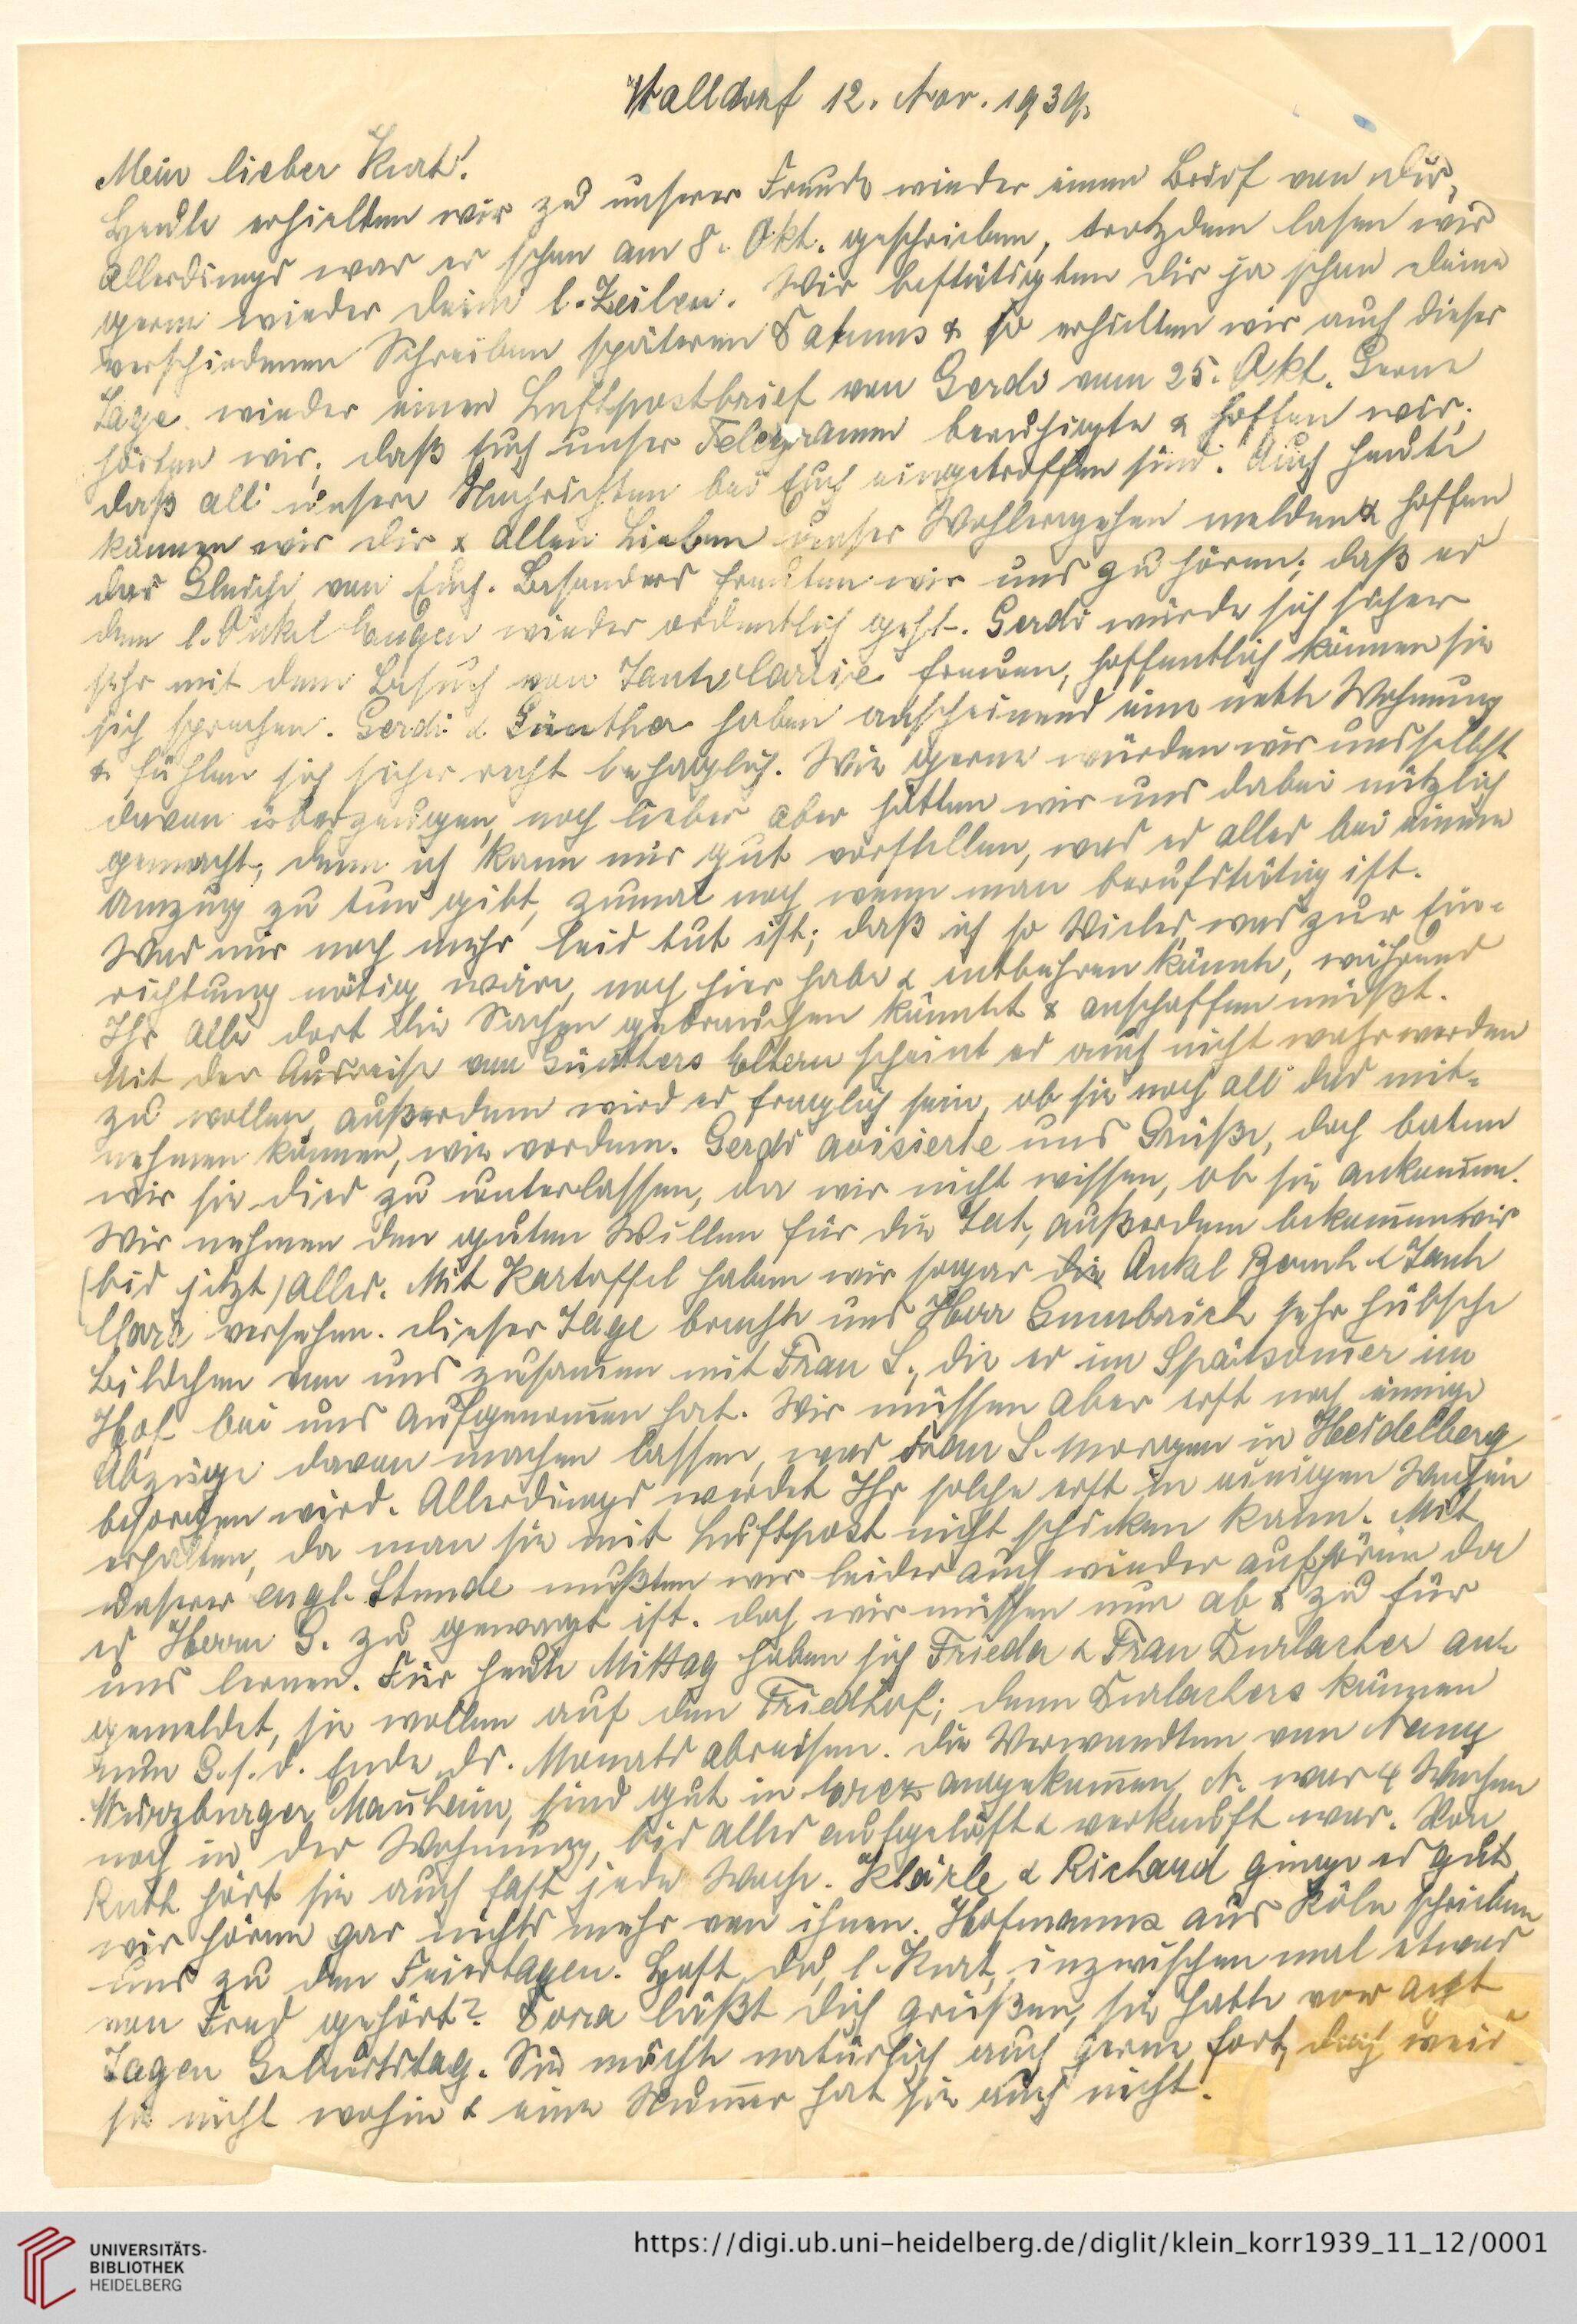 Walldorf 12. Nov. 1939.
Mein lieber Kurt!
Heute erhielten wir zu unserer Freude wieder einen Brief von Dir,
allerdings war er schon am 8. Okt. geschrieben, trotzdem lasen wir
gerne wieder deine l. Zeilen. Wir bestätigten dir ja schon deine
verschiedenen Schreiben späteren Datums & so erhielten wir auch dieser
Tage wieder einen Luftpostbrief von Gerdi vom 25. Okt. Gerne
hörten wir, daß Euch unser Telegramm beruhigte & hoffen wir,
daß all unsere Nachrichten bei Euch eingetroffen sind. Auch heute
können wir dir & allen Lieben unser Wohlergehen melden & hoffen
das Gleiche von Euch. Besonders freuten wir uns zu hören, daß es
dem l. Onkel Eugen wieder ordentlich geht. Gerdi würde sich sicher
sehr mit dem Besuch von Tante freuen, hoffentlich können sie
sich sprechen. Gerdi & Günther haben anscheinend eine nette Wohnung
& fühlen sich sicher recht behaglich. Wie gerne würden wir uns selbst
davon überzeugen, noch lieber aber hätten wir uns dabei nützlich
gemacht, denn ich kann mir gut vorstellen, was es alles bei einem
Umzug zu tun gibt, zumal noch wenn man berufstätig ist.
Was mir noch mehr leid tut ist; daß ich so Vieles, was zur Ein-
richtung nötig wäre, noch hier habe & entbehren könnte, während
Ihr alle dort die Sachen gebrauchen könntet & anschaffen müßt.
Mit der Ausreise von Günthers Eltern scheint es auch nicht wahr werden
zu wollen, außerdem wird es fraglich sein, ob sie noch all das mit-
nehmen können, wie vordem. Gerdi avisierte uns Grüße, doch baten
wir sie dies zu unterlassen, da wir nicht wissen, ob sie ankommen.
Wir nehmen den guten Willen für die Tat, außerdem bekommen wir
(bis jetzt) alles. Mit Kartoffel haben wir sogar die Onkel & Tante
Clara versehen. Dieser Tage brachte uns Herr sehr hübsche
Bildchen von uns zusammen mit Frau S., die er im Spätsommer im
Hof bei uns aufgenommen hat. Wir müssen aber erst noch einige
Abzüge davon machen lassen, was Frau S. morgen in Heidelberg
besorgen wird. Allerdings werdet Ihr solche erst in einigen Wochen
erhalten, da man sie mit Luftpost nicht schicken kann. Mit
unserer engl. Stunde mußten wir leider auch wieder aufhören da
es Herrn G. zu gewagt ist. Doch wir müssen nun ab & zu für
uns lernen. Für heute Mittag haben sich Frieda & Frau Durlacher an-
gemeldet, sie wollen auf den Friedhof; denn Durlachers können
nun G. s. d. Ende ds. Monats abreisen. Die Verwandten von Nany
Würzburger, Mannheim, sind gut in angekommen, N. war 4 Wochen
noch in der Wohnung, bis alles aufgelöst & verkauft war. Von
Ruth hört sie auch fast jede Woche. Klärle & Richard ginge es gut,
wir hören gar nichts mehr von ihnen. Hofmanns aus Köln schrieben
uns zu den Feiertagen. Hast du, l. Kurt, inzwischen mal etwas
von Fred gehört? Dora läßt dich grüßen, sie hatte vor acht
Tagen Geburtstag. Sie möchte natürlich auch gerne fort, doch weis
sie nicht wohin & eine Nummer hat sie auch nicht.
UNIVERSITÄTS-
BIBLIOTHEK
HEIDELBERG
https://digi.ub.uni-heidelberg.de/diglit/klein_korr1939_11_12/0001